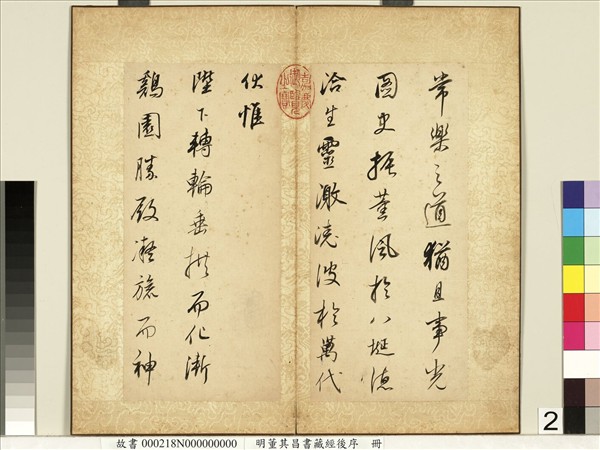 常樂之道猶且事光
圖史振薰風於八埏德
洽生靈激堯波於萬代
伏惟
陛下轉輪垂拱而化漸
鷄園勝殿凝旒而神
2
故書 000218N000000000 明董其昌書藏經後序 冊